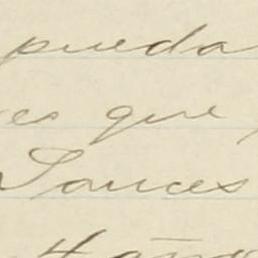 pueda
es que
Sauces